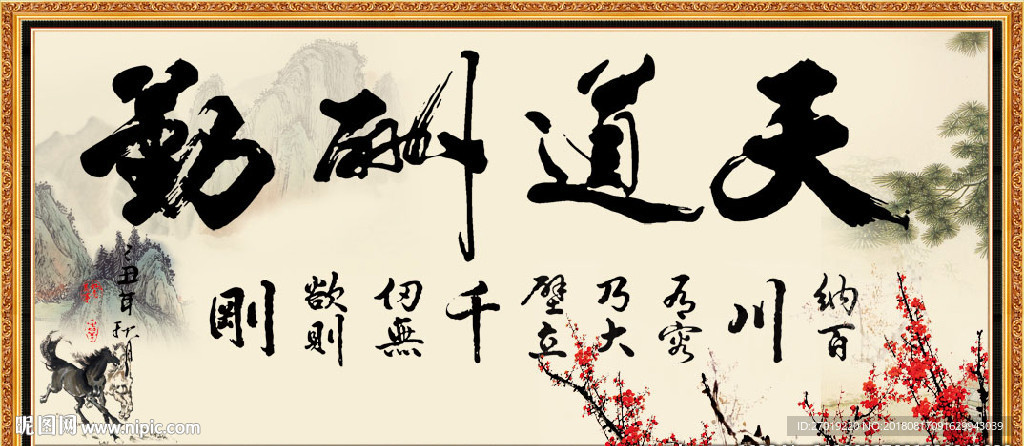 天道酬勤
納百川有容乃大壁立千仞無欲則剛
己丑年秋月
昵图网 www.nipic.com
ID:27019220 NO:20180817091629943039